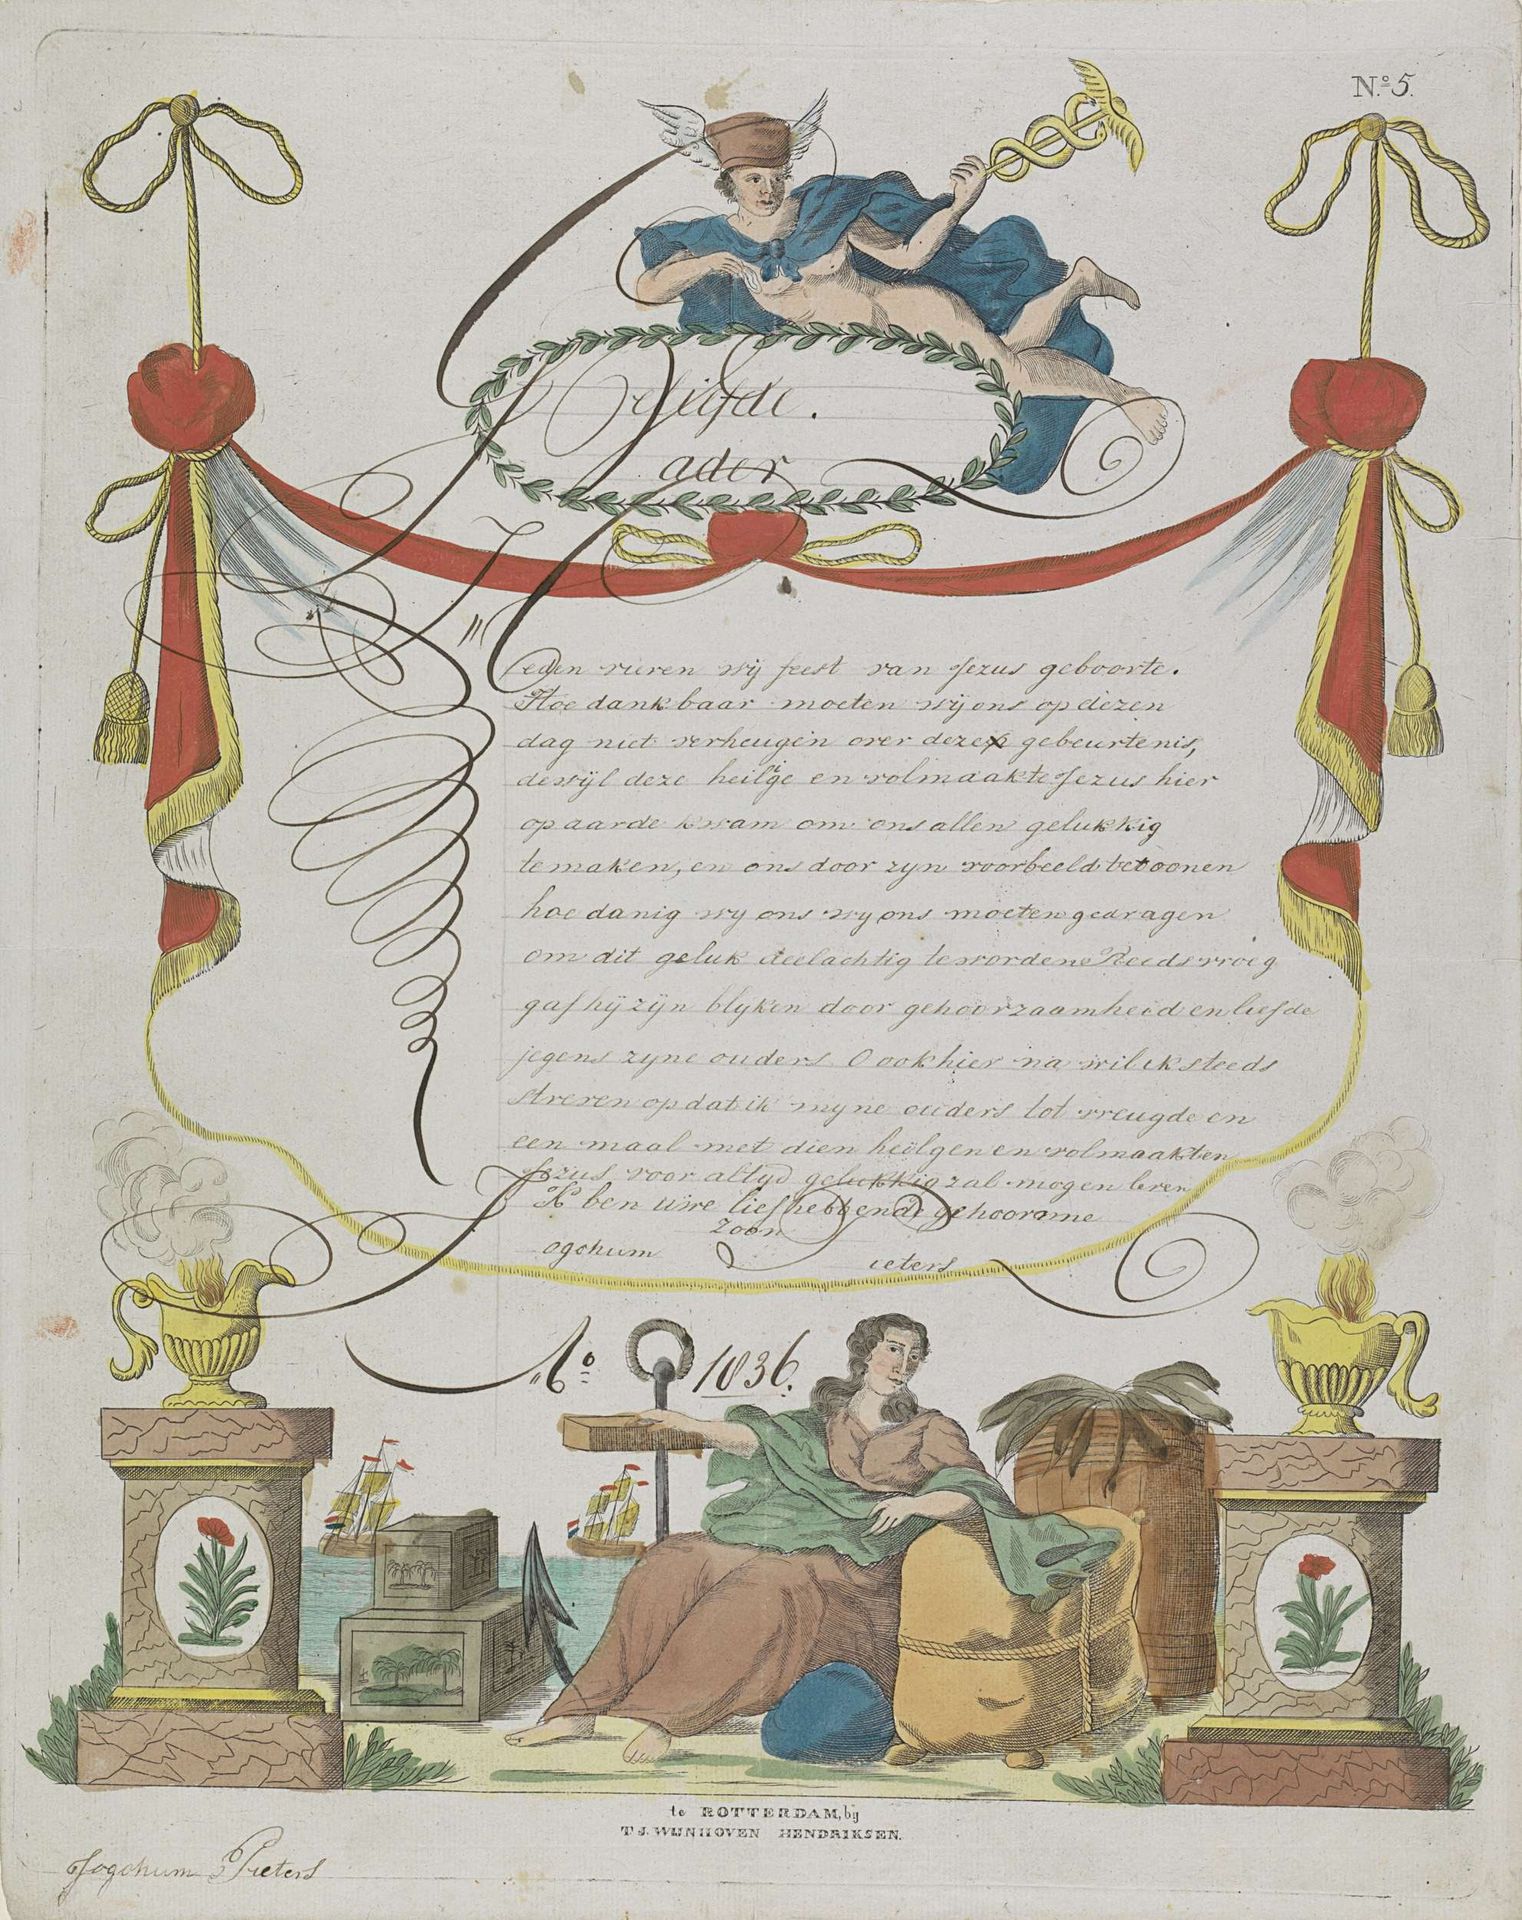 N.º 5.
Geliefde.
Vader
Heden vieren wij feest van Jezus geboorte.
Hoe dankbaar moeten wij ons op dezen
dag niet verheugen over deze gebeurtenis,
dewijl deze heilige en volmaakte Jezus hier
op aarde kwam om ons allen gelukkig
te maken, en ons door zyn voorbeeld betoonen
hoedanig wy ons wy ons moeten gedragen
om dit geluk deelachtig te worden Reeds vroeg
gaf hij zijn blyken door gehoorzaamheid en liefde
jegens zyne ouders O ook hier na wil ik steeds
streven op dat ik myne ouders tot vreugde en
een maal met dien heiligen en volmaakten
Jezus voor altyd gelukkig zal mogen leven
Ik ben uwe liefhebbende gehoorzame
zoon
Jogchum Pieters
Aº 1836.
te ROTTERDAM, bij
T. J. WIJNHOVEN HENDRIKSEN.
Jogchum Pieters